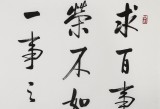 求百事
榮不如
一事之